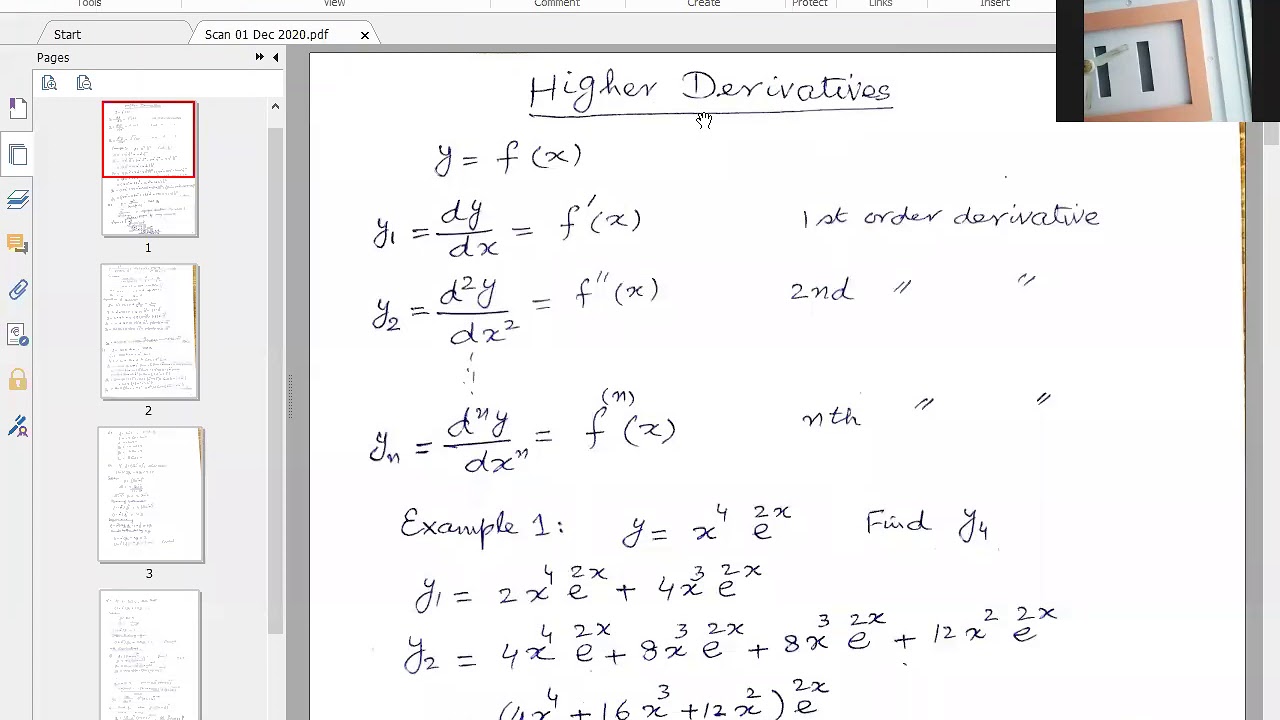 Tools View Comment Create Protect Links Insert
Start Scan 01 Dec 2020.pdf ×
Pages
1
2
3
Higher Derivatives
y = f(x)
y₁ = dy/dx = f'(x) 1st order derivative
y₂ = d²y/dx² = f''(x) 2nd " "
yₙ = dⁿy/dxⁿ = f⁽ⁿ⁾(x) nth " "
Example 1: y = x⁴ e²ˣ Find y₄
y₁ = 2x⁴ e²ˣ + 4x³ e²ˣ
y₂ = 4x⁴ e²ˣ + 8x³ e²ˣ + 8x³ e²ˣ + 12x² e²ˣ
(4x⁴ + 16x³ + 12x²) e²ˣ